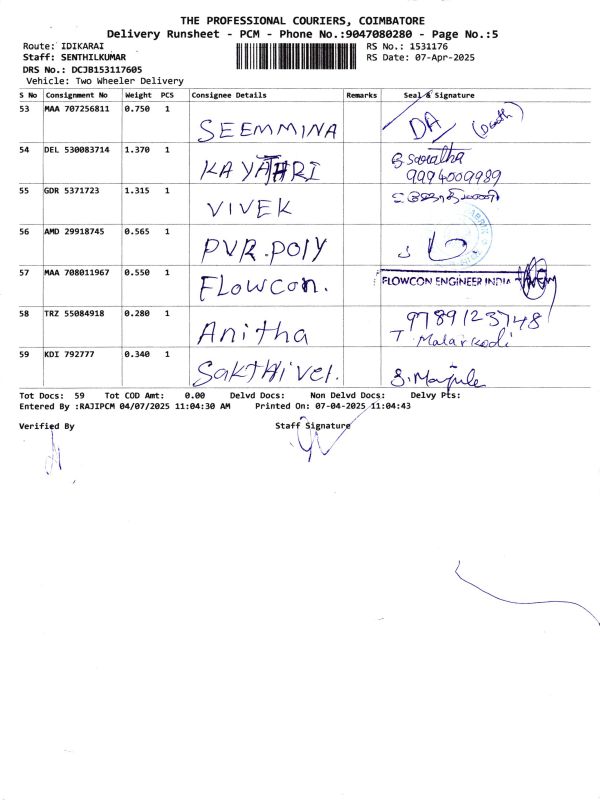 THE PROFESSIONAL COURIERS, COIMBATORE
Delivery Runsheet - PCM - Phone No.:9047080280 - Page No.:5
Route: IDIKARAI RS No.: 1531176
Staff: SENTHILKUMAR RS Date: 07-Apr-2025
DRS No.: DCJB153117605
Vehicle: Two Wheeler Delivery
S No Consignment No Weight PCS Consignee Details Remarks Seal & Signature
53 MAA 707256811 0.750 1 SEEMMINA DA
54 DEL 530083714 1.370 1 KAYATHRI
9994009989
55 GDR 5371723 1.315 1 VIVEK
56 AMD 29918745 0.565 1 PVR.POLY
57 MAA 708011967 0.550 1 Flowcon. FLOWCON ENGINEER INDIA
58 TRZ 55084918 0.280 1 Anitha 9789123748
T Malarkodi
59 KDI 792777 0.340 1 Sakthivel.
Tot Docs: 59 Tot COD Amt: 0.00 Delvd Docs: Non Delvd Docs: Delvy Pts:
Entered By :RAJIPCM 04/07/2025 11:04:30 AM Printed On: 07-04-2025 11:04:43
Verified By Staff Signature